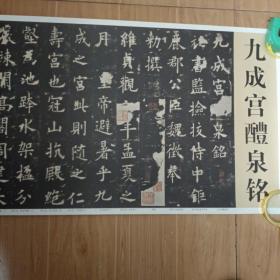 九成宫醴泉铭
九成宮醴泉銘
秘書監檢校侍中鉅
鹿郡公臣魏徵奉
勑撰
維貞觀年孟夏之
月皇帝避暑乎九
成之宮此則隨之仁
壽宮也冠山抗殿絕
壑為池跨水架楹分
巖竦闕高閣周建